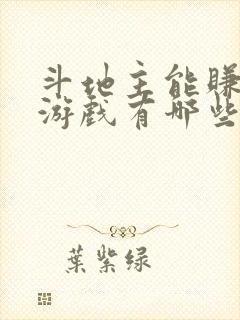 斗地主能赚
游戏有哪些
葉紫绿